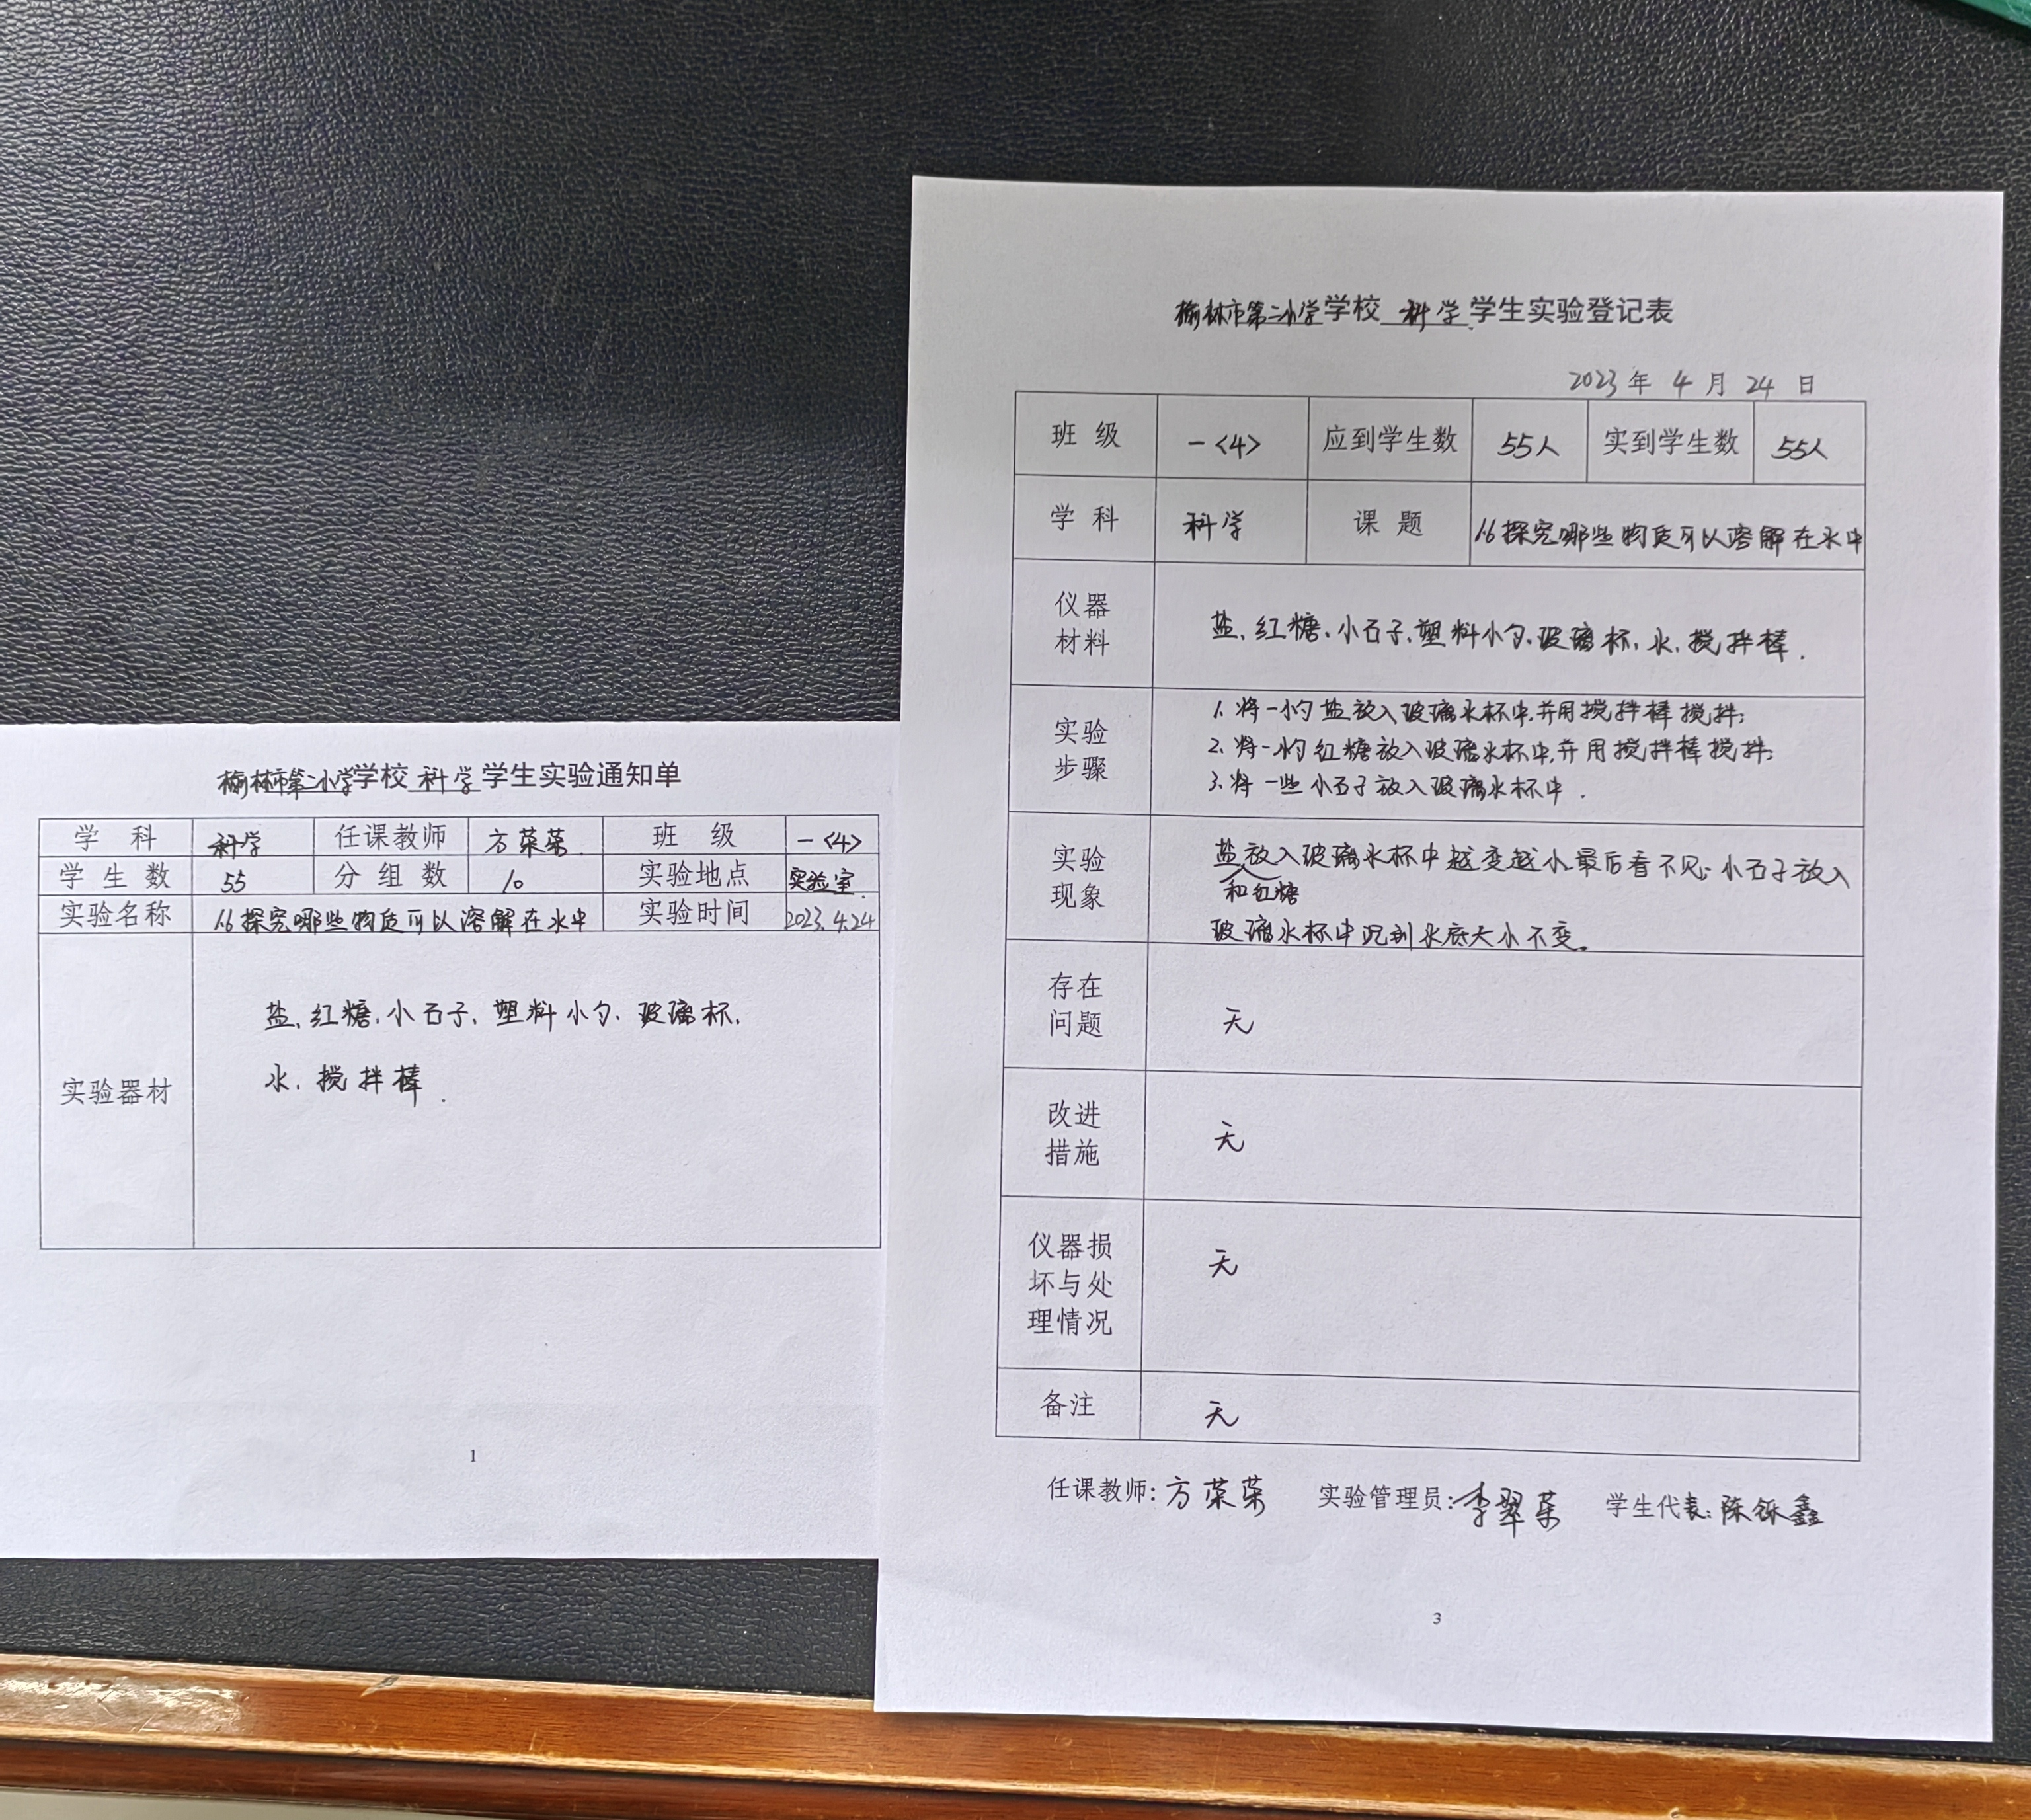 榆林市第二小学学校 科学 学生实验通知单
学科 科学 任课教师 方荣荣 班级 一<4>
学生数 55 分组数 10 实验地点 实验室
实验名称 1.6探究哪些物质可以溶解在水中 实验时间 2023.4.24
实验器材
盐、红糖、小石子、塑料小勺、玻璃杯、
水、搅拌棒.
1
榆林市第二小学学校 科学 学生实验登记表
2023年 4月 24日
班级 一<4> 应到学生数 55人 实到学生数 55人
学科 科学 课题 1.6探究哪些物质可以溶解在水中
仪器
材料
盐、红糖、小石子、塑料小勺、玻璃杯、水、搅拌棒.
实验
步骤
1. 将一小勺盐放入玻璃水杯中,并用搅拌棒搅拌;
2. 将一小勺红糖放入玻璃水杯中,并用搅拌棒搅拌;
3. 将一些小石子放入玻璃水杯中.
实验
现象
盐放入玻璃水杯中越变越小,最后看不见;小石子放入
和红糖
玻璃水杯中沉到水底大小不变。
存在
问题
无
改进
措施
无
仪器损
坏与处
理情况
无
备注 无
任课教师:方荣荣 实验管理员:李翠荣 学生代表:陈铄鑫
3